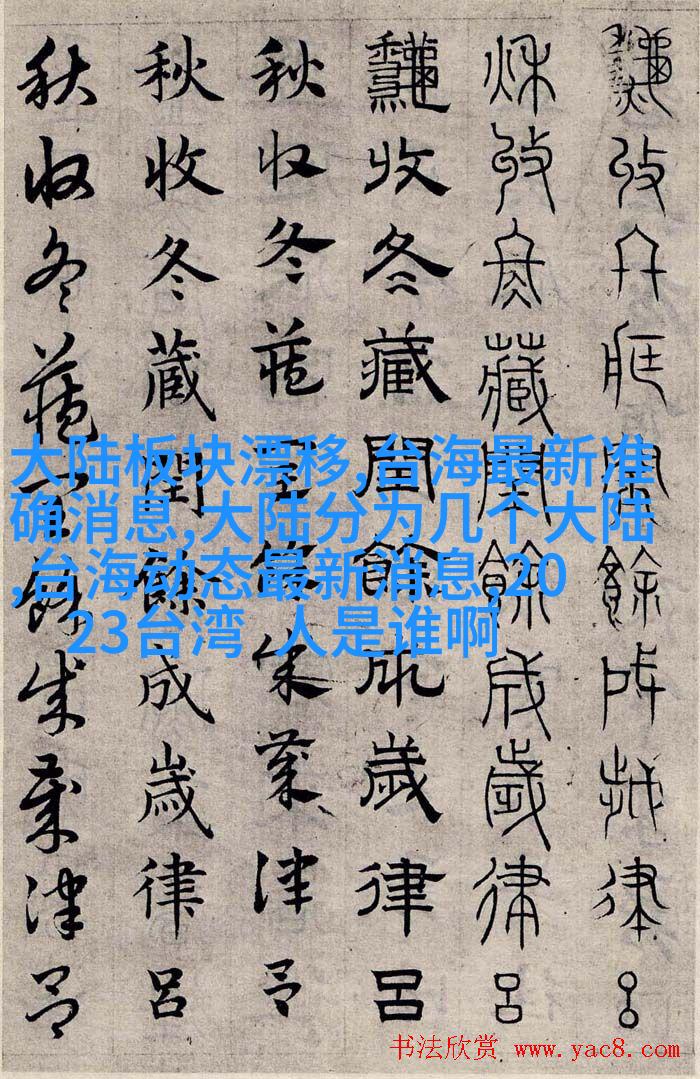 收冬藏閏餘成歲律呂
秋收冬藏閏餘成歲律呂
龝收冬藏閏餘成歲律呂
秋收冬藏閏餘成歲律呂
秋收冬藏閏餘成歲律呂
秋收冬藏閏餘成歲律呂
大陆板块漂移,台海最新准
确消息,大陆分为几个大陆
,台海动态最新消息,20
23台湾 人是谁啊
书法欣赏 www.yac8.com